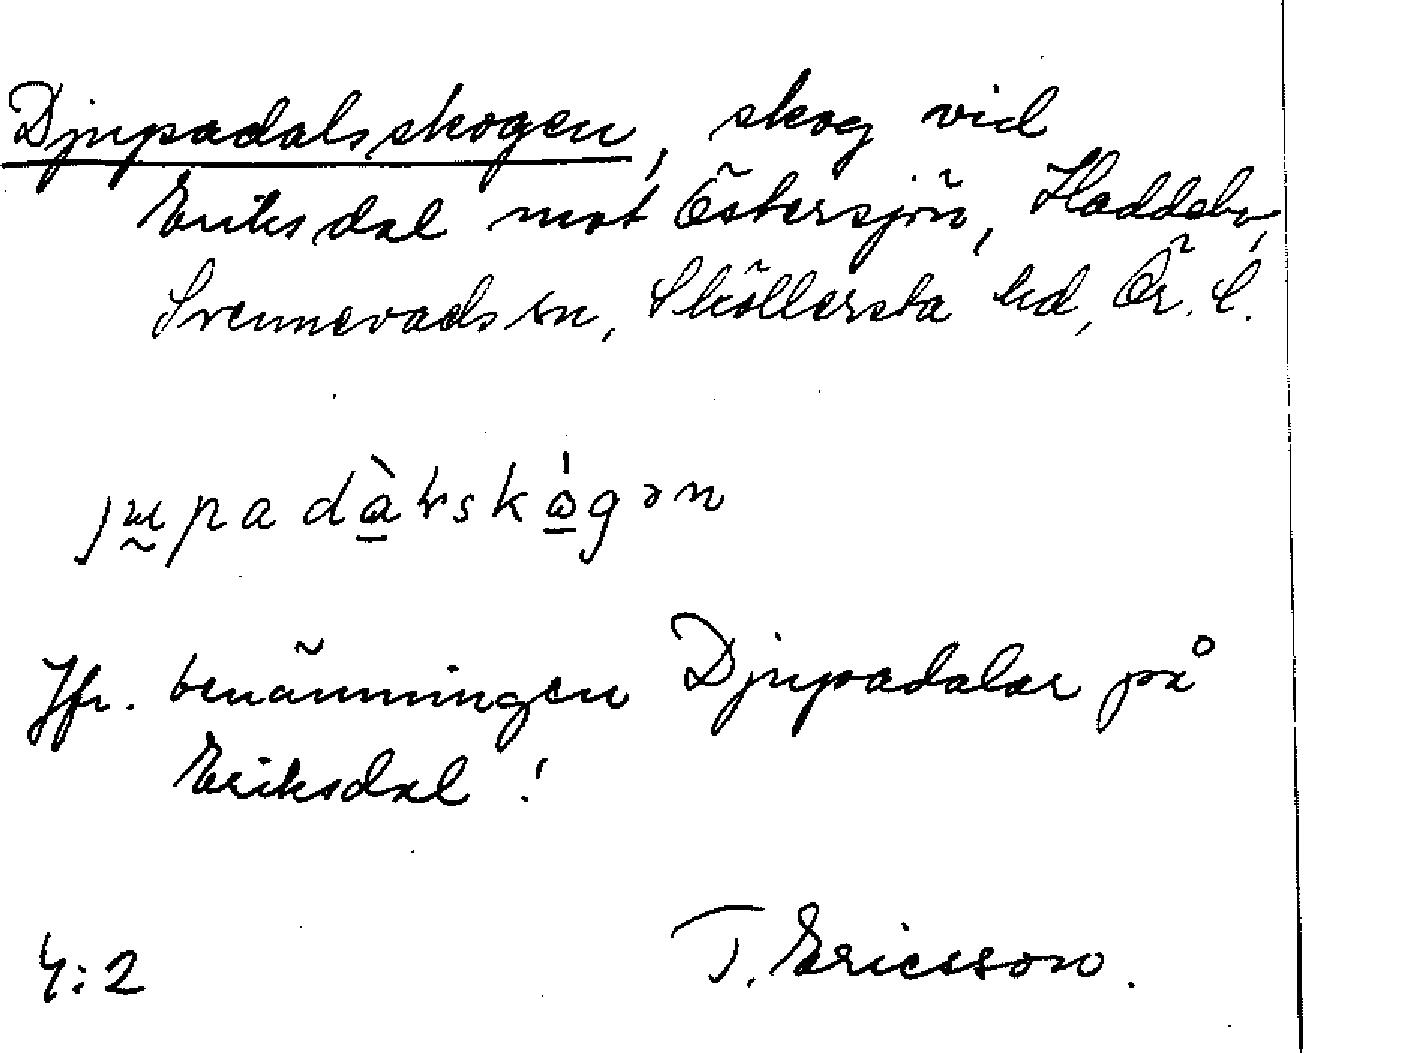 Djupadalsskogen, skog vid
Eriksdal mot Östersjön, Haddebo,
Svennevads sn, Sköllersta hd, Ör. l.
Jfr. benämningen Djupadalar på
Eriksdal!
4:2 T. Ericsson.